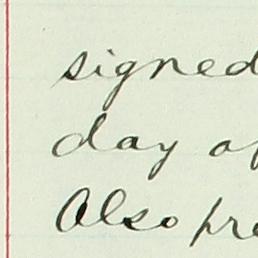 signed
day of
Also pre